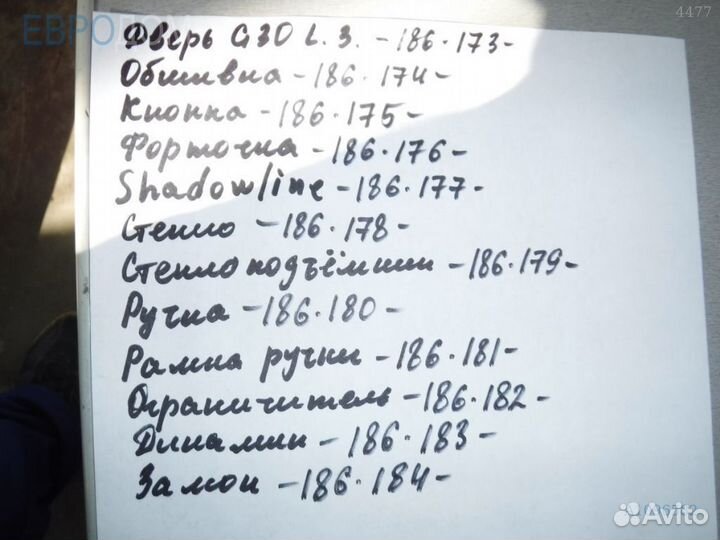 4477
ЕВРО
Дверь G30 L.З. -186.173-
Обшивка -186.174-
Кнопка -186.175-
Форточка -186.176-
Shadowline -186.177-
Стекло -186.178-
Стеклоподъёмник -186.179-
Ручка -186.180-
Рамка ручки -186.181-
Ограничитель -186.182-
Динамик -186.183-
Замок -186.184-
Avito